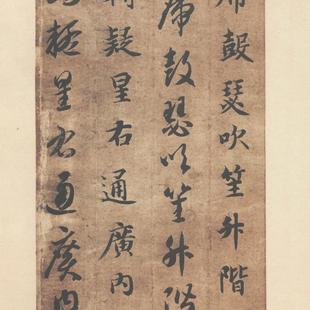 席鼓瑟吹笙升階
席鼓瑟吹笙升階
轉疑星右通廣内
疑星右通廣内